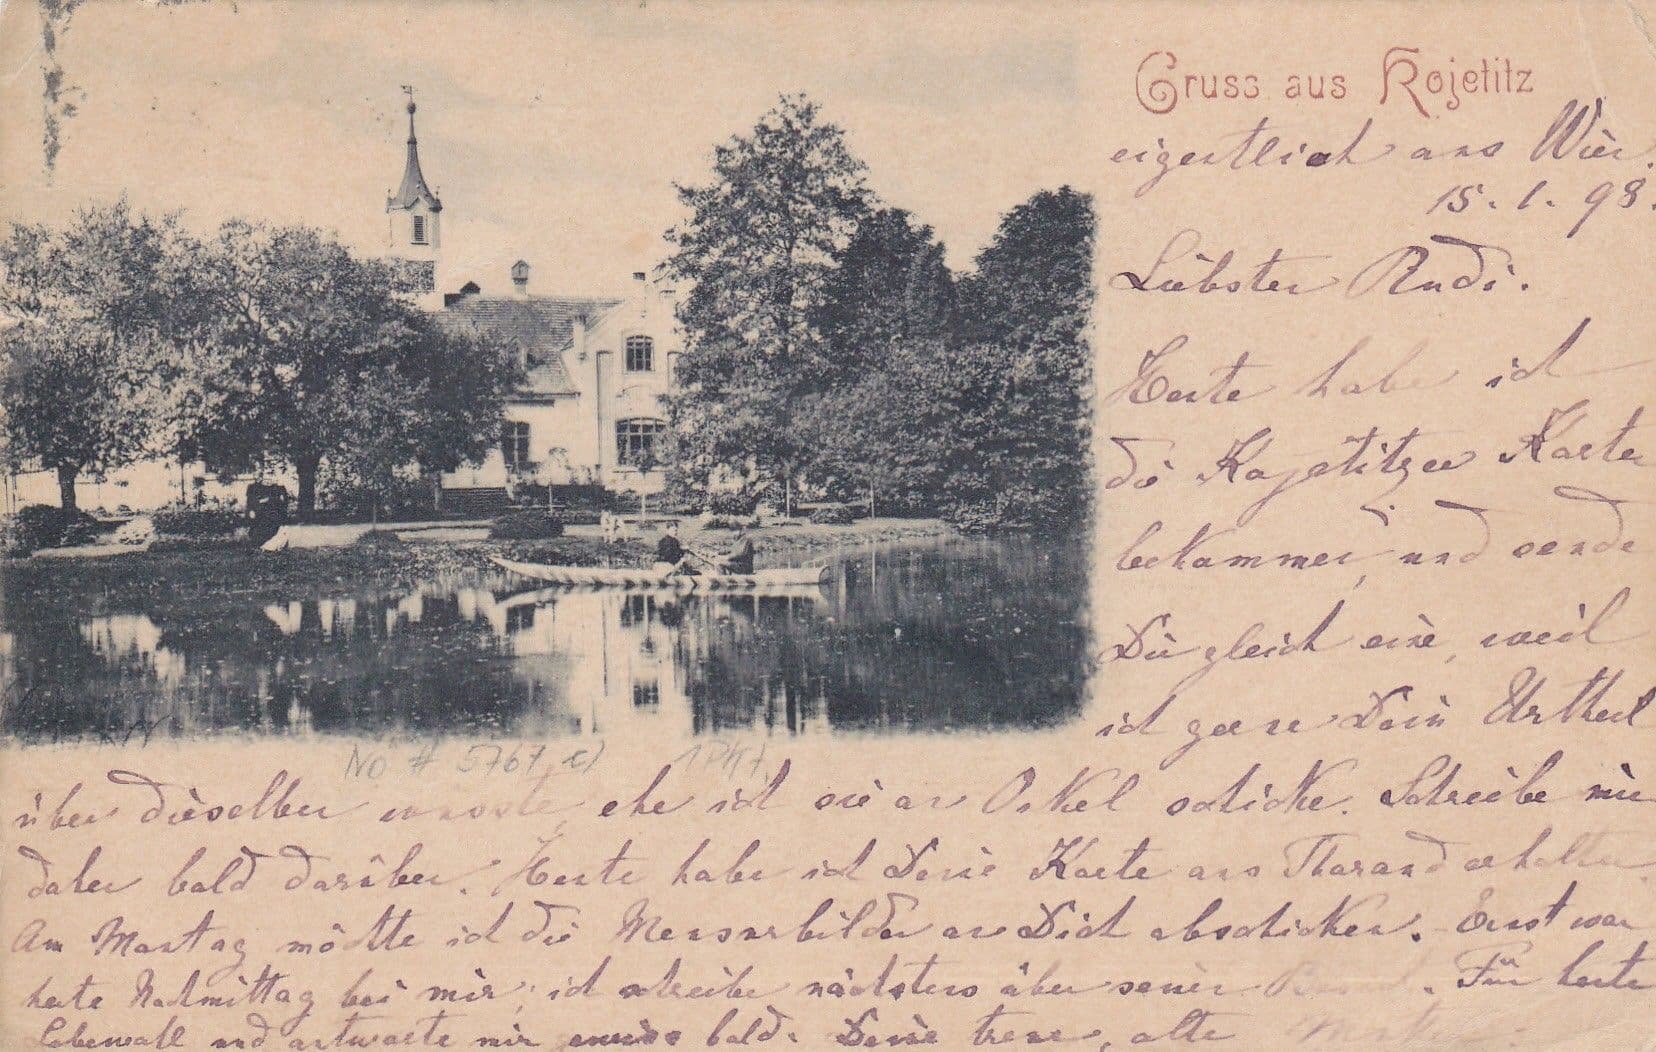 Gruss aus Kojetitz
eigentlich aus Wien.
15. 1. 98.
Liebster Rudi.
Heute habe ich
die Kojetitzer Karten
bekommen, und sende
Dir gleich eine, weil
ich gerne Dein Urtheil
über dieselben wüsste, ehe ich sie an Onkel schicke. Schreibe mir
daher bald darüber. Heute habe ich Deine Karte aus Tharand erhalten.
Am Montag möchte ich die Mensurbilder an Dich abschicken. Ernst war
heute Nachmittag bei mir; ich schreibe nächstens über seinen. Für heute
Lebewohl und antworte mir bald. Deine treue, alte
No # 5767 c)